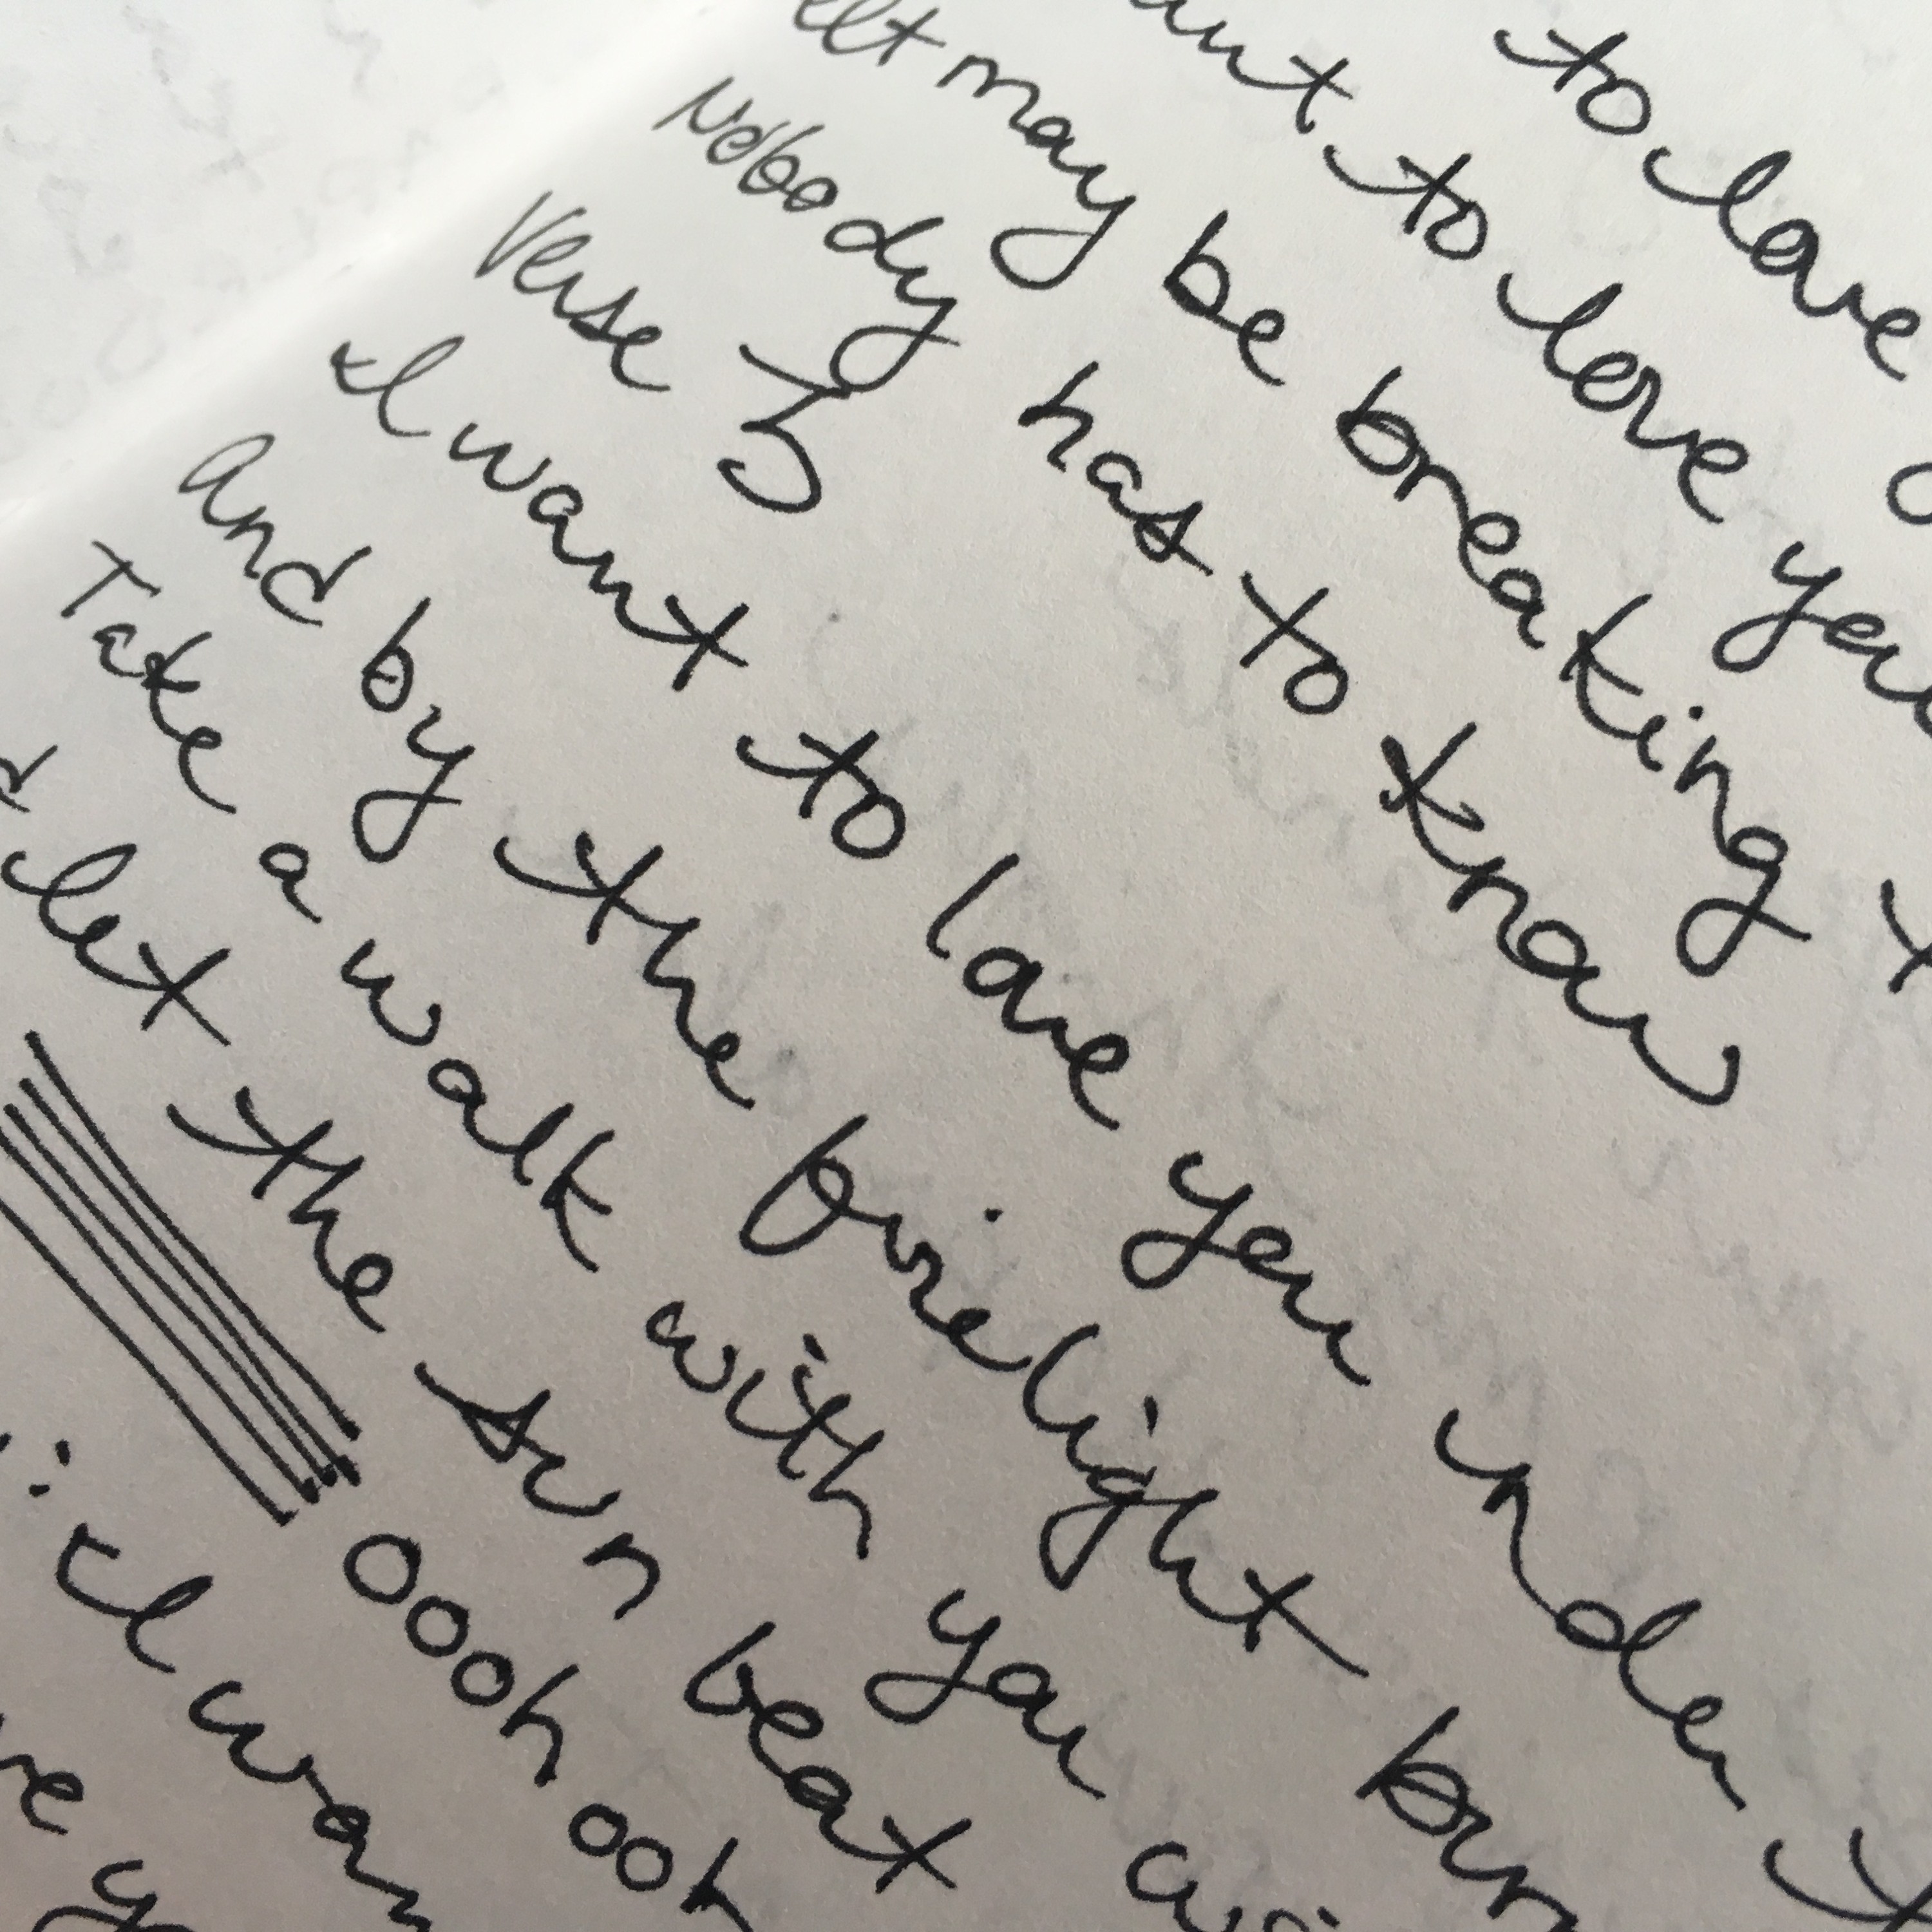 to love
to love you
It may be breaking
Nobody has to know
Verse 3
I want to love you under
And by the firelight
Take a walk with you
let the sun beat
oooh ooh
I